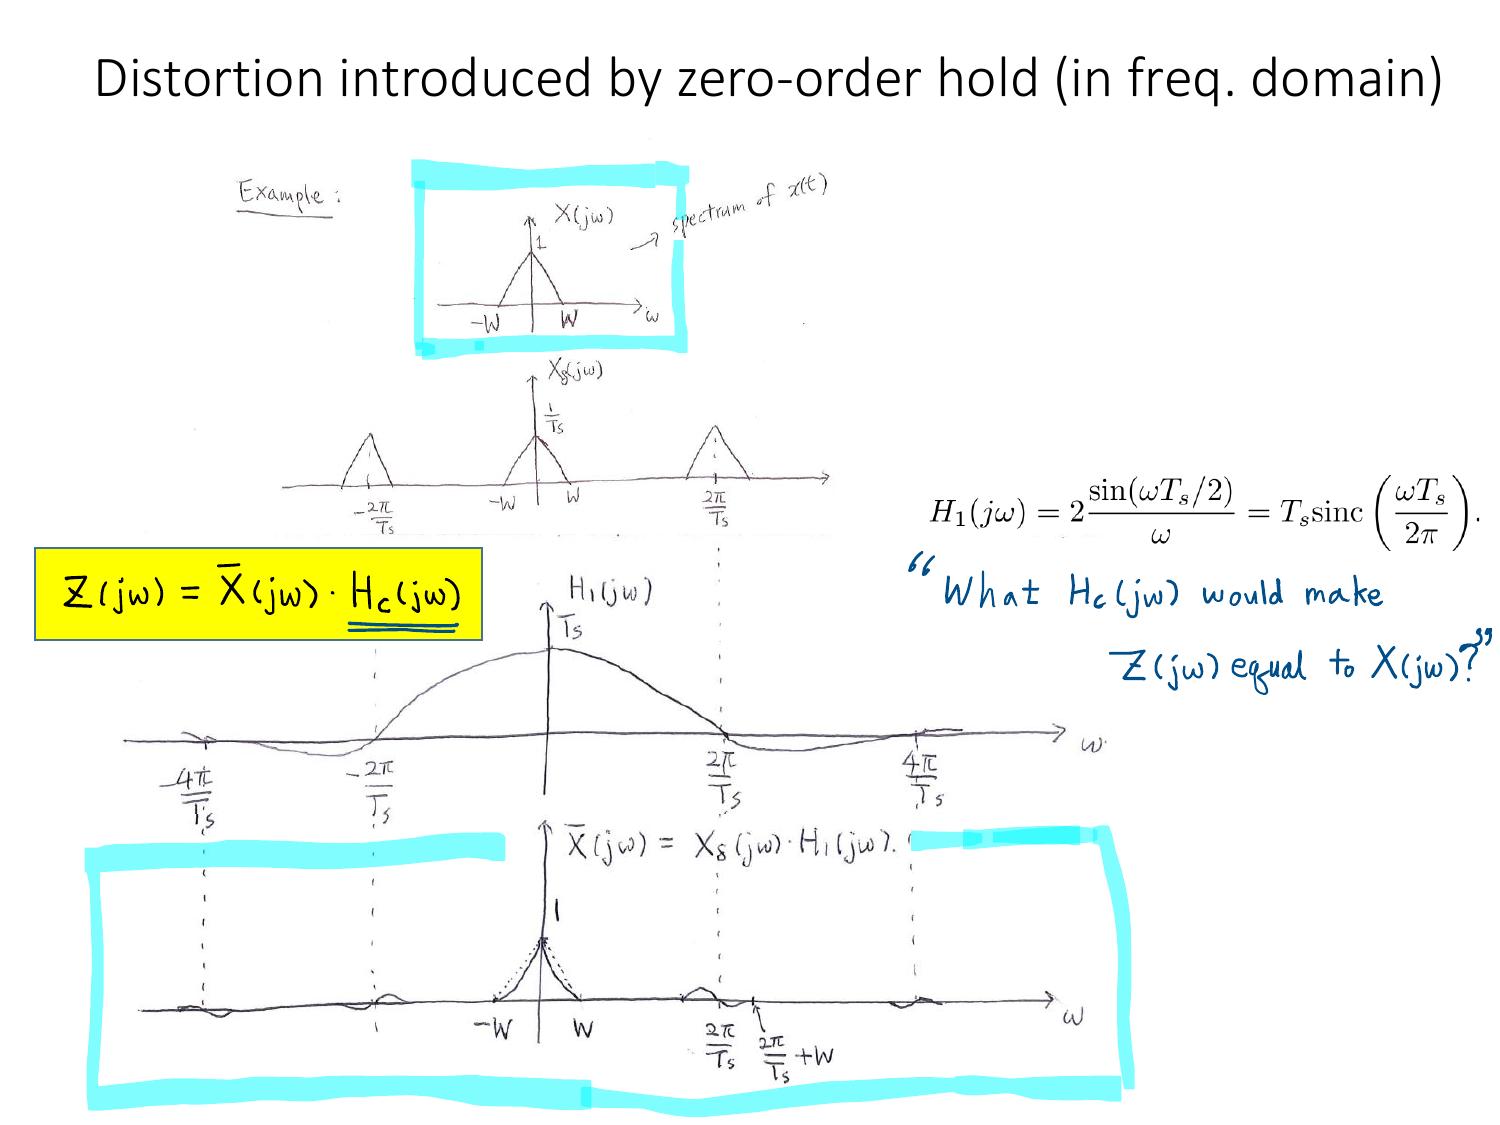 Distortion introduced by zero-order hold (in freq. domain)
Example :
X(jω) → spectrum of x(t)
1
-W W ω
Xδ(jω)
1/Ts
-2π/Ts -W W 2π/Ts
H₁(jω) = 2 sin(ωTs/2)/ω = Ts sinc (ωTs/2π).
Z(jω) = X̄(jω) · Hc(jω)
"What Hc(jω) would make
Z(jω) equal to X(jω)?"
H₁(jω)
Ts
-4π/Ts -2π/Ts 2π/Ts 4π/Ts ω
X̄(jω) = Xδ(jω) · H₁(jω).
1
-W W 2π/Ts 2π/Ts +W ω